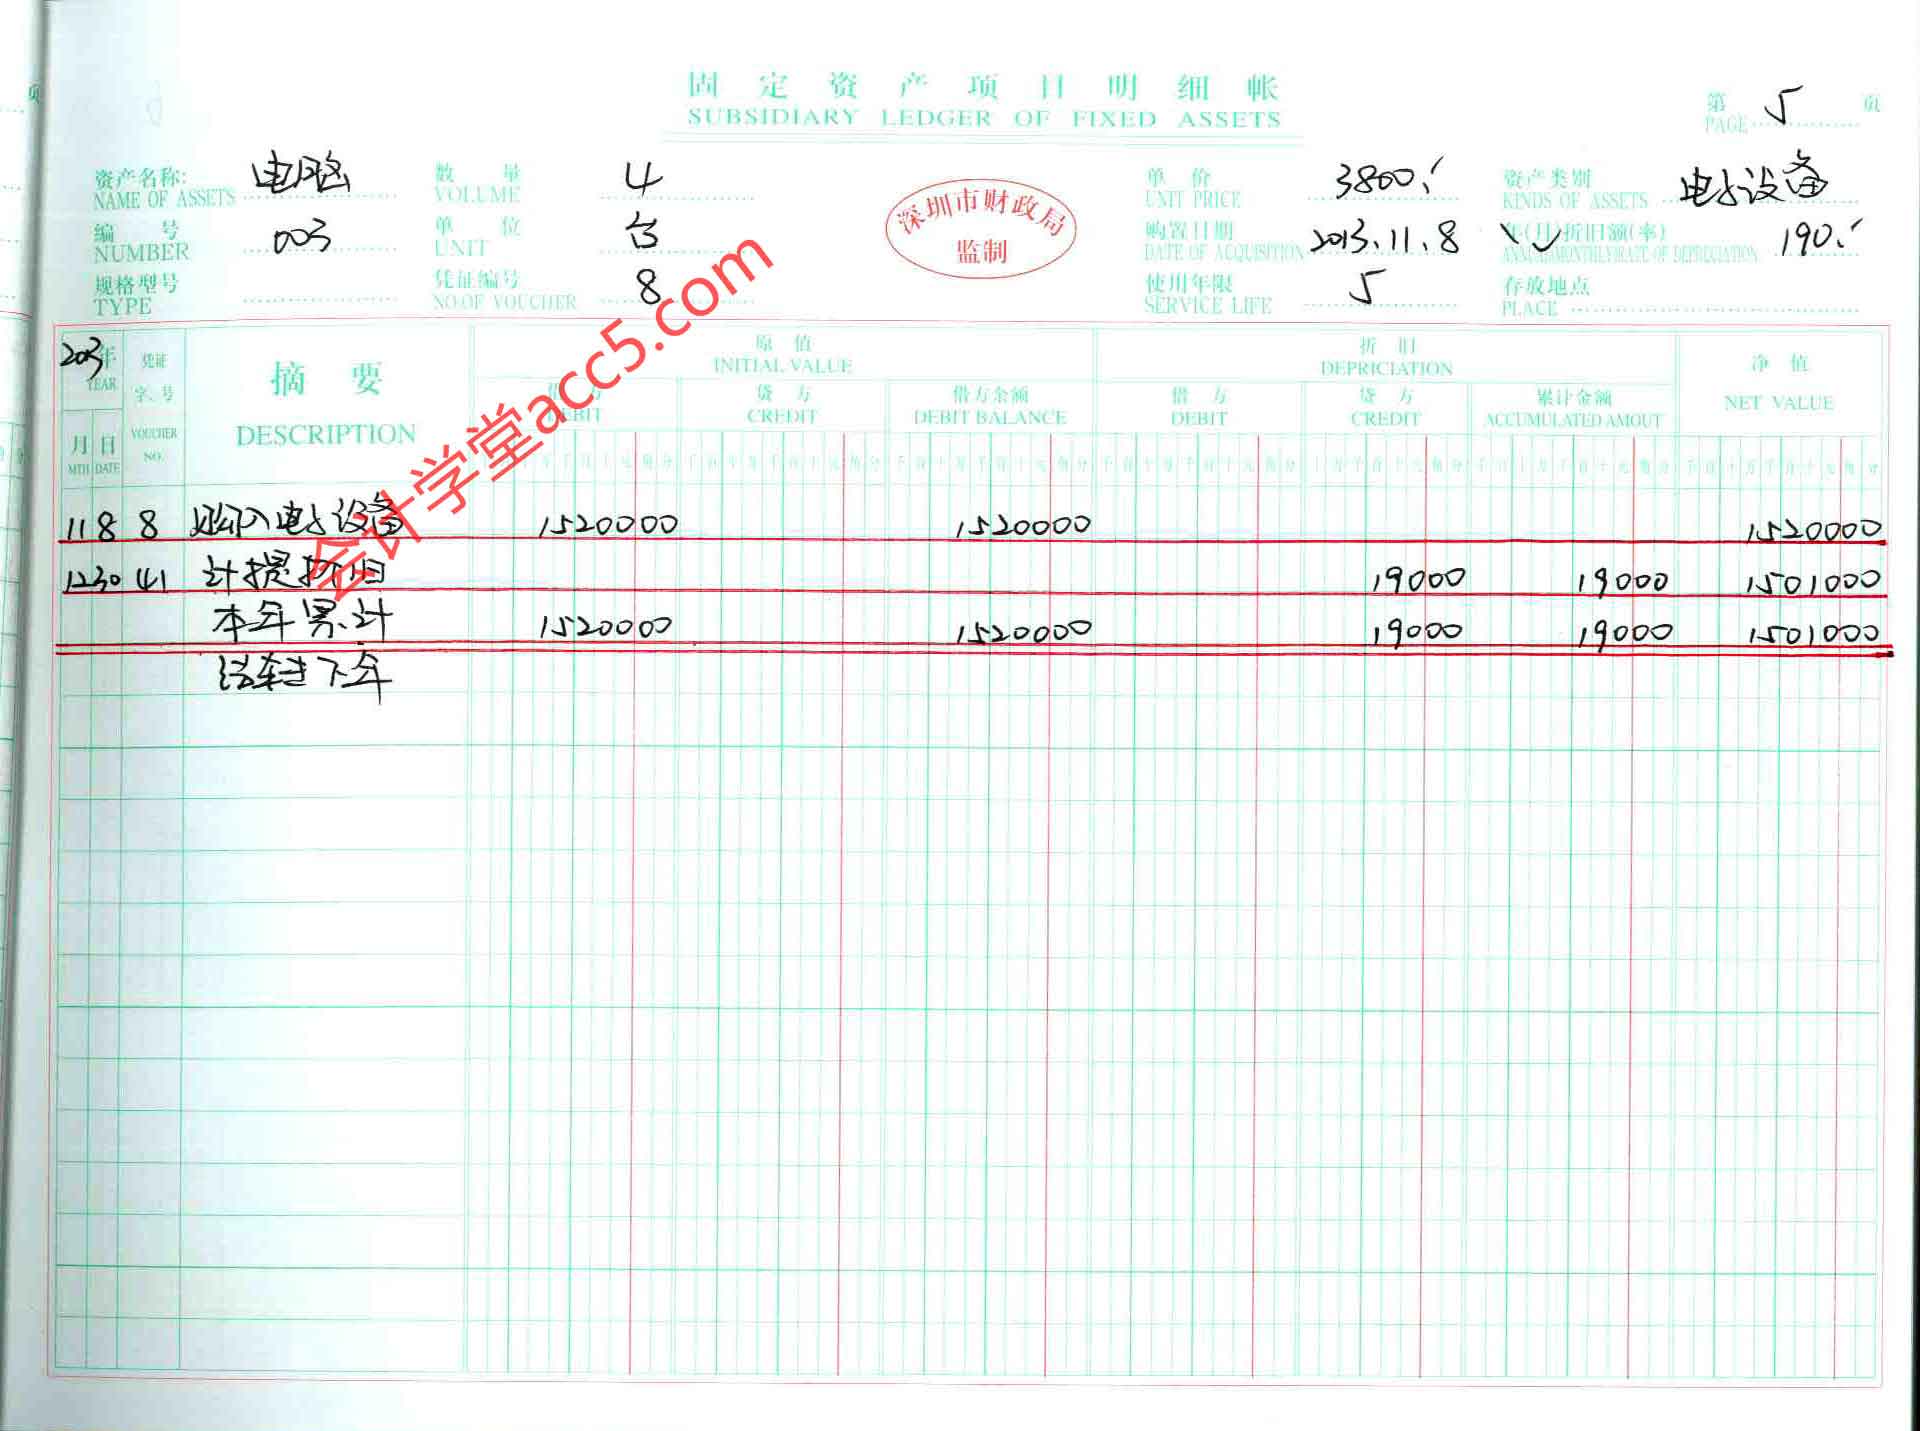 固定资产项目明细帐
SUBSIDIARY LEDGER OF FIXED ASSETS
第 5 页
PAGE
资产名称: 电脑 数量 4 单价 3800.- 资产类别 电子设备
NAME OF ASSETS VOLUME UNIT PRICE KINDS OF ASSETS
编号 003 单位 台 购置日期 2013.11.8 年(月)折旧额(率) 190.-
NUMBER UNIT DATE OF ACQUISITION ANNUAL(MONTHLY)RATE OF DEPRECIATION
规格型号 凭证编号 8 使用年限 5 存放地点
TYPE NO.OF VOUCHER SERVICE LIFE PLACE
深圳市财政局
监制
2013年 凭证 摘要 原值 折旧 净值
YEAR 字、号 DESCRIPTION INITIAL VALUE DEPRICIATION NET VALUE
借方 贷方 借方余额 借方 贷方 累计金额
DEBIT CREDIT DEBIT BALANCE DEBIT CREDIT ACCUMULATED AMOUT
月 日 VOUCHER
MTH DATE NO.
11 8 8 购入电子设备 1520000 1520000 1520000
12 30 41 计提折旧 19000 19000 1501000
本年累计 1520000 1520000 19000 19000 1501000
结转下年
会计学堂acc5.com